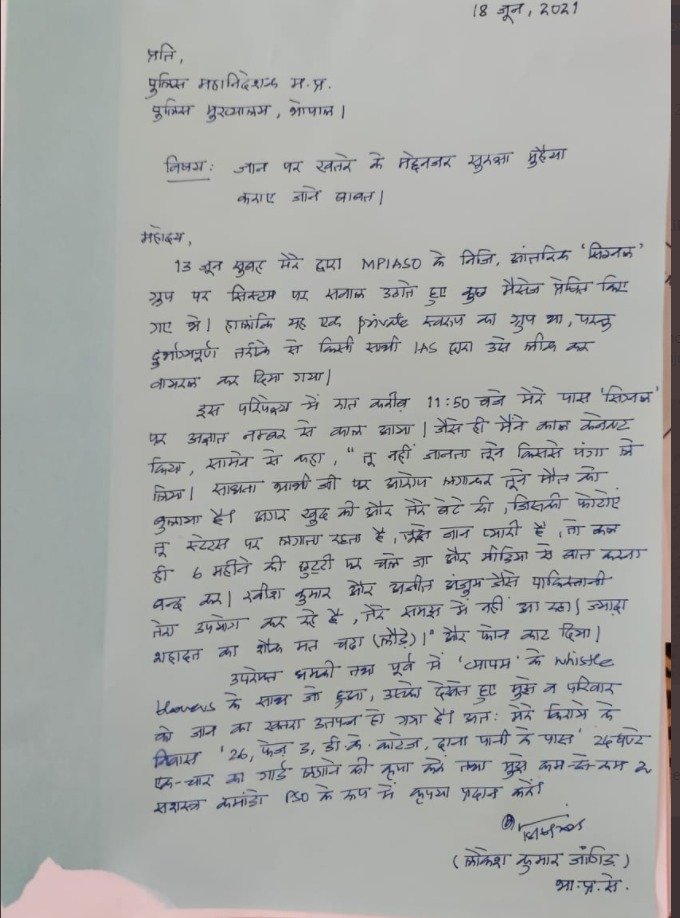 18 जून, 2021
प्रति,
पुलिस महानिदेशक म.प्र.
पुलिस मुख्यालय, भोपाल।
विषय: जान पर खतरे के मद्देनजर सुरक्षा मुहैया
कराए जाने बाबत।
महोदय,
13 जून सुबह मेरे द्वारा MPIASO के निजि, आंतरिक 'सिग्नल'
ग्रुप पर सिस्टम पर सवाल उठाते हुए कुछ मैसेज प्रेषित किए
गए थे। हालांकि यह एक private स्वरूप का ग्रुप था, परन्तु
दुर्भाग्यपूर्ण तरीके से किसी साथी IAS द्वारा उसे लीक कर
वायरल कर दिया गया।
इस परिपेक्ष्य में रात करीब 11:50 बजे मेरे पास 'सिग्नल'
पर अज्ञात नम्बर से काल आया। जैसे ही मैंने काल कनेक्ट
किया, सामने से कहा, "तू नहीं जानता तूने किससे पंगा ले
लिया। साधना भाभी जी पर आरोप लगाकर तूने मौत को
बुलाया है। अगर खुद की और तेरे बेटे की, जिसकी फोटोएं
तू स्टेटस पर लगाता रहता है, तुझे जान प्यारी है, तो कल
ही 6 महीने की छुट्टी पर चले जा और मीडिया से बात करना
बन्द कर। रवीश कुमार और अजीत अंजुम जैसे पाकिस्तानी
तेरा उपयोग कर रहे है, तेरे समझ में नहीं आ रहा। ज्यादा
शहादत का शौक मत चढ़ा (लौड़े)।" और फोन काट दिया।
उपरोक्त धमकी तथा पूर्व में 'व्यापम' के whistle
blowers के साथ जो हुआ, उसको देखते हुए मुझे व परिवार
को जान का खतरा उत्पन्न हो गया है। अतः मेरे किराये के
निवास '26, फेज 3, डी.के. कॉटेज, दाना पानी के पास' 24 घण्टे
एक-चार का गार्ड लगाने की कृपा करें तथा मुझे कम-से-कम 2
सशस्त्र कमांडो PSO के रूप में कृपया प्रदान करें।
(लोकेश कुमार जांगिड़)
भा.प्र.से.